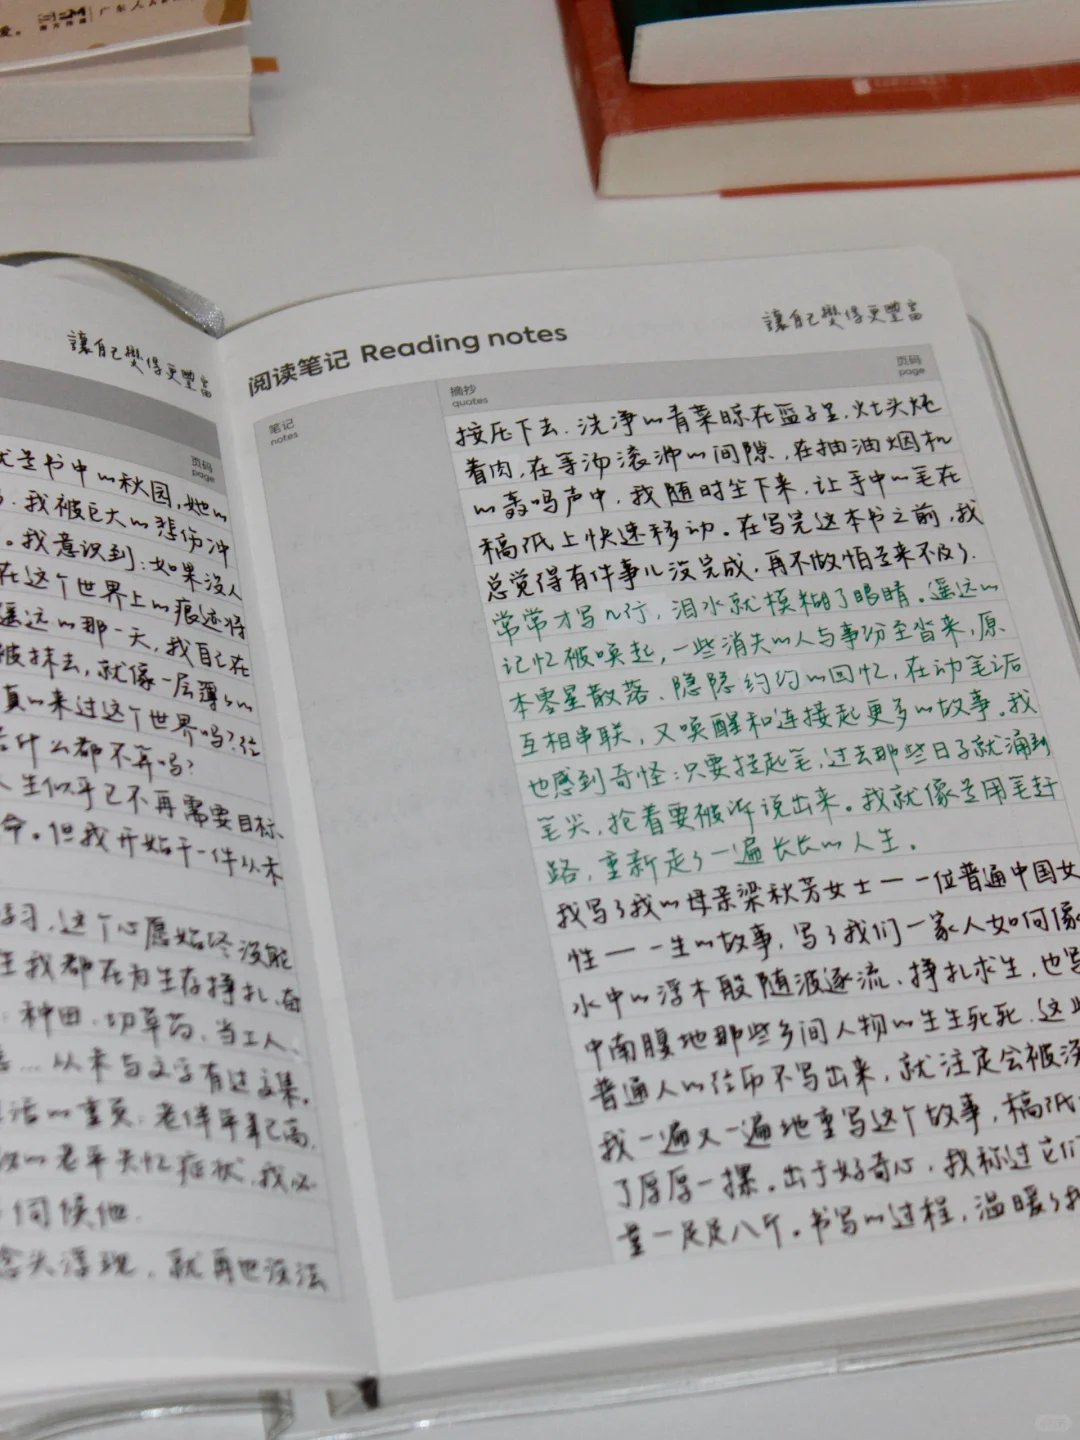 广东人
讓自己變得更豐富
页码
page
就是书中的秋园,她的
我被巨大的悲伤冲
。我意识到:如果没人
在这个世界上的痕迹将
遥远的那一天,我自己在
被抹去,就像一层薄薄的
真的来过这个世界吗?经
什么都不算吗?
人生似乎已不再需要目标
命。但我开始干一件从未
学习,这个心愿始终没能
我都在为生存挣扎、奋
种田、切草药、当工人、
…从未与文字有过交集。
活的重负:老伴年事已高,
的老年失忆症状,我必
伺候他.
念头浮现,就再也没法
阅读笔记 Reading notes
讓自己變得更豐富
笔记
notes
摘抄
quotes
页码
page
按压下去.洗净的青菜晾在篮子里,灶头炖
着肉,在等汤滚沸的间隙,在抽油烟机
的轰鸣声中,我随时坐下来,让手中的笔在
稿纸上快速移动。在写完这本书之前,我
总觉得有件事儿没完成,再不做怕是来不及了.
常常才写几行,泪水就模糊了眼睛。遥远的
记忆被唤起,一些消失的人与事纷至沓来,原
本零星散落、隐隐约约的回忆,在动笔之后
互相串联,又唤醒和连接起更多的故事。我
也感到奇怪:只要提起笔,过去那些日子就涌到
笔尖,抢着要被诉说出来。我就像是用笔赶
路,重新走了一遍长长的人生。
我写了我的母亲梁秋芳女士——一位普通中国女
性——一生的故事,写了我们一家人如何像
水中的浮木般随波逐流、挣扎求生,也写
中南腹地那些乡间人物的生生死死.这些
普通人的经历不写出来,就注定会被淹
我一遍又一遍地重写这个故事,稿纸
了厚厚一摞。出于好奇心,我称过它们
量一足足八斤。书写的过程,温暖了我